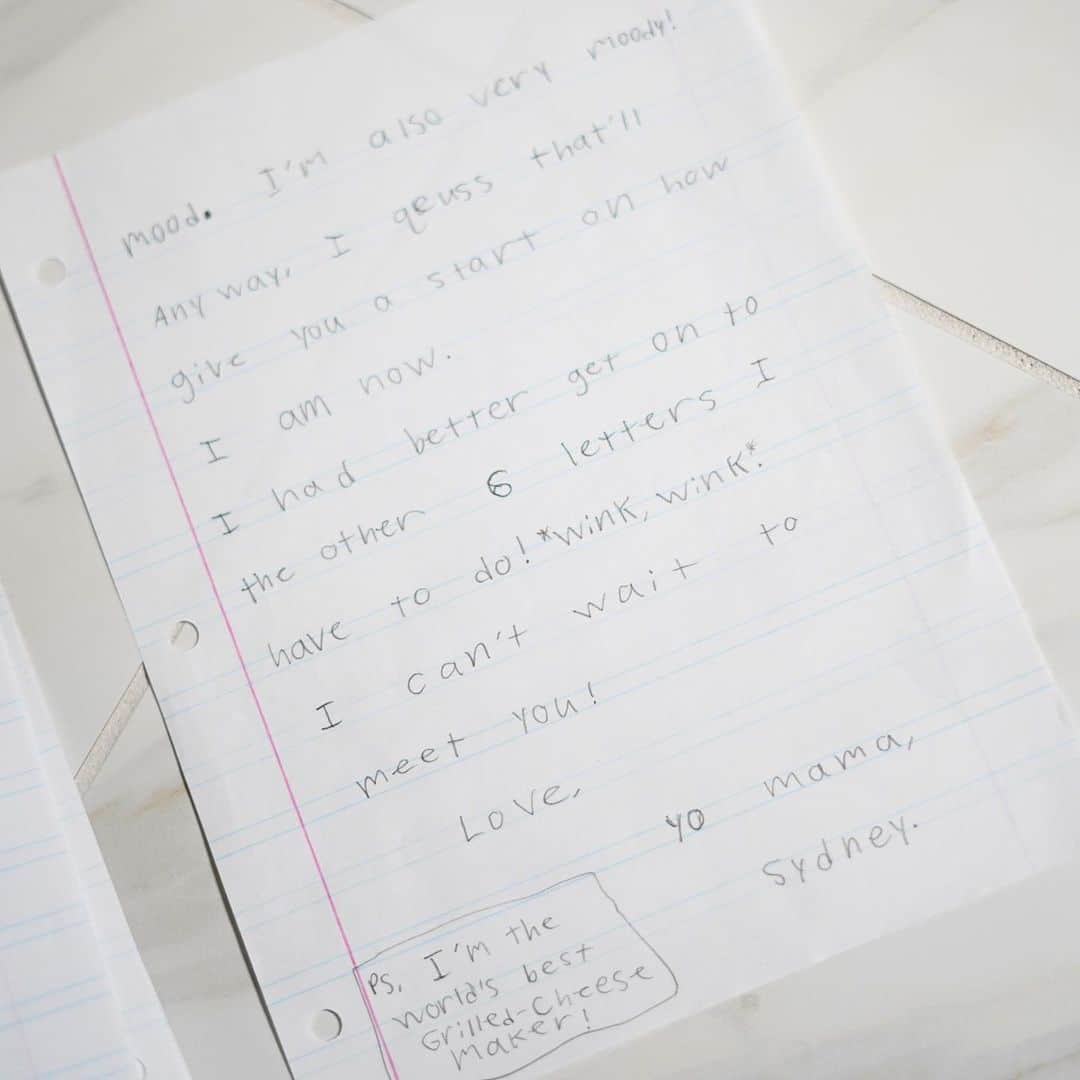 mood. I'm also very moody!
Any way, I qeuss that'll
give you a start on how
I am now.
I had better get on to
the other 6 letters I
have to do! *wink, wink*.
I can't wait to
meet you!
Love,
yo mama,
Sydney.
PS. I'm the
world's best
Grilled-Cheese
maker!